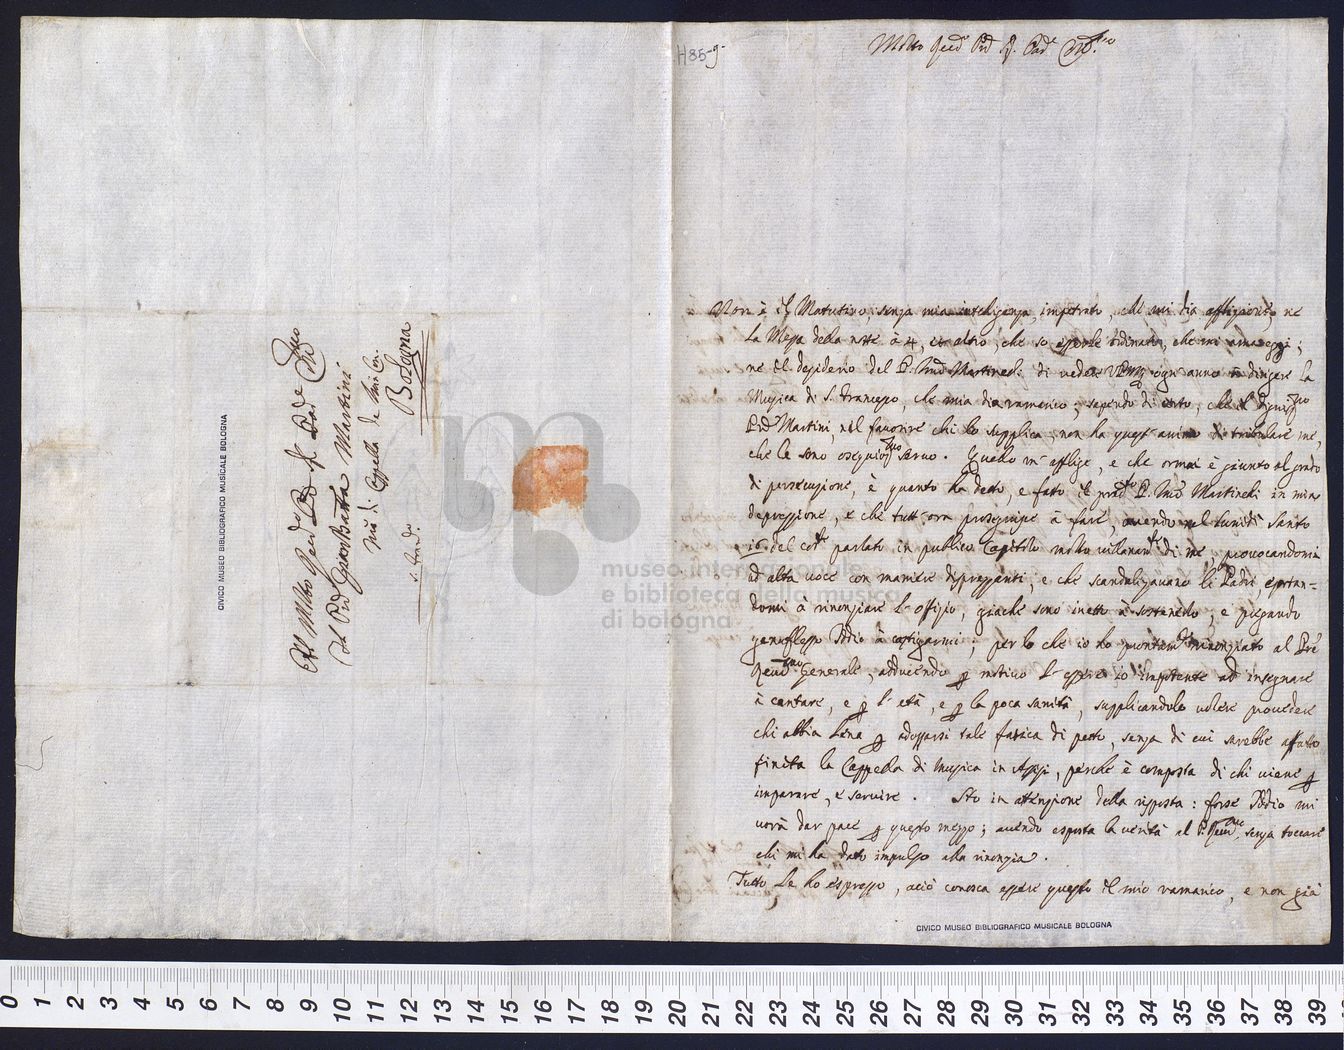 Al Molto Rev.do Pre Pad.e
Il P.re Giambatta Martini
M.ro di Cappella de Min: Con:
Bologna
s. Fran.co
CIVICO MUSEO BIBLIOGRAFICO MUSICALE BOLOGNA
H85-9
Molto Rev.do P.re Pad.e
Non è il Matutino, senza mia inteligenza, impetrato, che mi dia afflizione, ne
la Messa della notte à 4, et altro, che so essersi ordinato, che mi amareggi;
ne il desiderio del P. M.ro Martinelli di vedere ogni anno à dirigere la
Musica di S. Francesco, che mia dia ramarico; sapendo di certo, che il Dignis.mo
P.re Martini, nel favorire chi lo supplica, non ha quest'animo di tribolare me,
che le sono ossequios.mo servo. Quello m'afflige, e che ormai è giunto al grado
di persecuzione, è quanto ha detto, e fatto il P. M.ro Martinelli in mia
depressione, e che tutt'ora proseguisce à fare, avendo nel lunidì Santo
16 del cor.te parlato in publico Capitolo molto villanam.te di me, provocandomi
ad alta voce con maniere disprezzanti, e che scandalizavano li Padri, esortan-
domi à rinonziare l'offizio, giachè sono inetto à sostenerlo, e pregando
genuflesso Iddio à castigarmi; per lo che io ho prontam.te rinonziato al P.re
Rev.mo Generale, adducendo p motivo l'essere io impotente ad insegnare
à cantare, e p l'età, e p la poca sanità, supplicandolo volere provedere
chi abbia lena p adossarsi tale fatica di petto, senza di cui sarebbe affatto
finita la Cappella di Musica in Assisi, perchè è composta di chi viene p
imparare, e servire. Sto in attenzione della risposta: forse Iddio mi
vorrà dar pace p questo mezzo; avendo esposta la verità al P. Rev.mo, senza toccare
chi mi ha dato impulso alla rinonzia.
Tutto le ho espresso, acciò conosca essere questo il mio ramarico, e non già
CIVICO MUSEO BIBLIOGRAFICO MUSICALE BOLOGNA
museo internazionale
e biblioteca della musica
di bologna
0 1 2 3 4 5 6 7 8 9 10 11 12 13 14 15 16 17 18 19 20 21 22 23 24 25 26 27 28 29 30 31 32 33 34 35 36 37 38 39